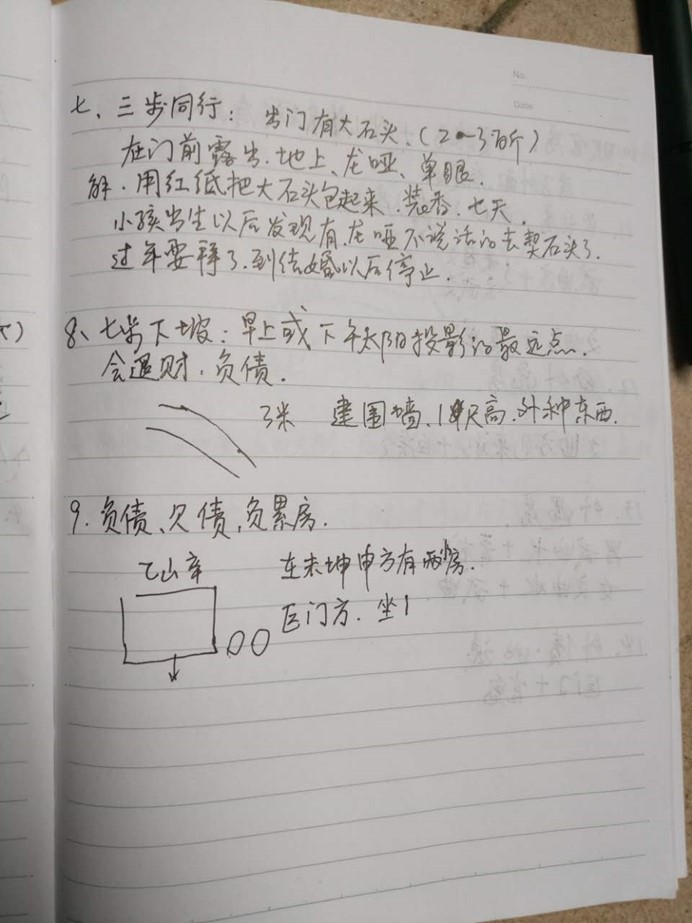 No.
Date
七、三步同行： 出门有大石头、(2~3百斤)
在门前露出.地上、龙哑、单眼.
解.用红纸把大石头包起来.装香.七天.
小孩出生以后发现有.龙哑不说话的去契石头了.
过年要拜了.到结婚以后停止.
8、七步下坡：早上或下午太阳投影的最远点.
会退财.负债.
3米 建围墙、1米尺高.外种东西.
9.负债、欠债,负累房.
乙山辛
在未坤申方有两小房.
巨门方.坐1